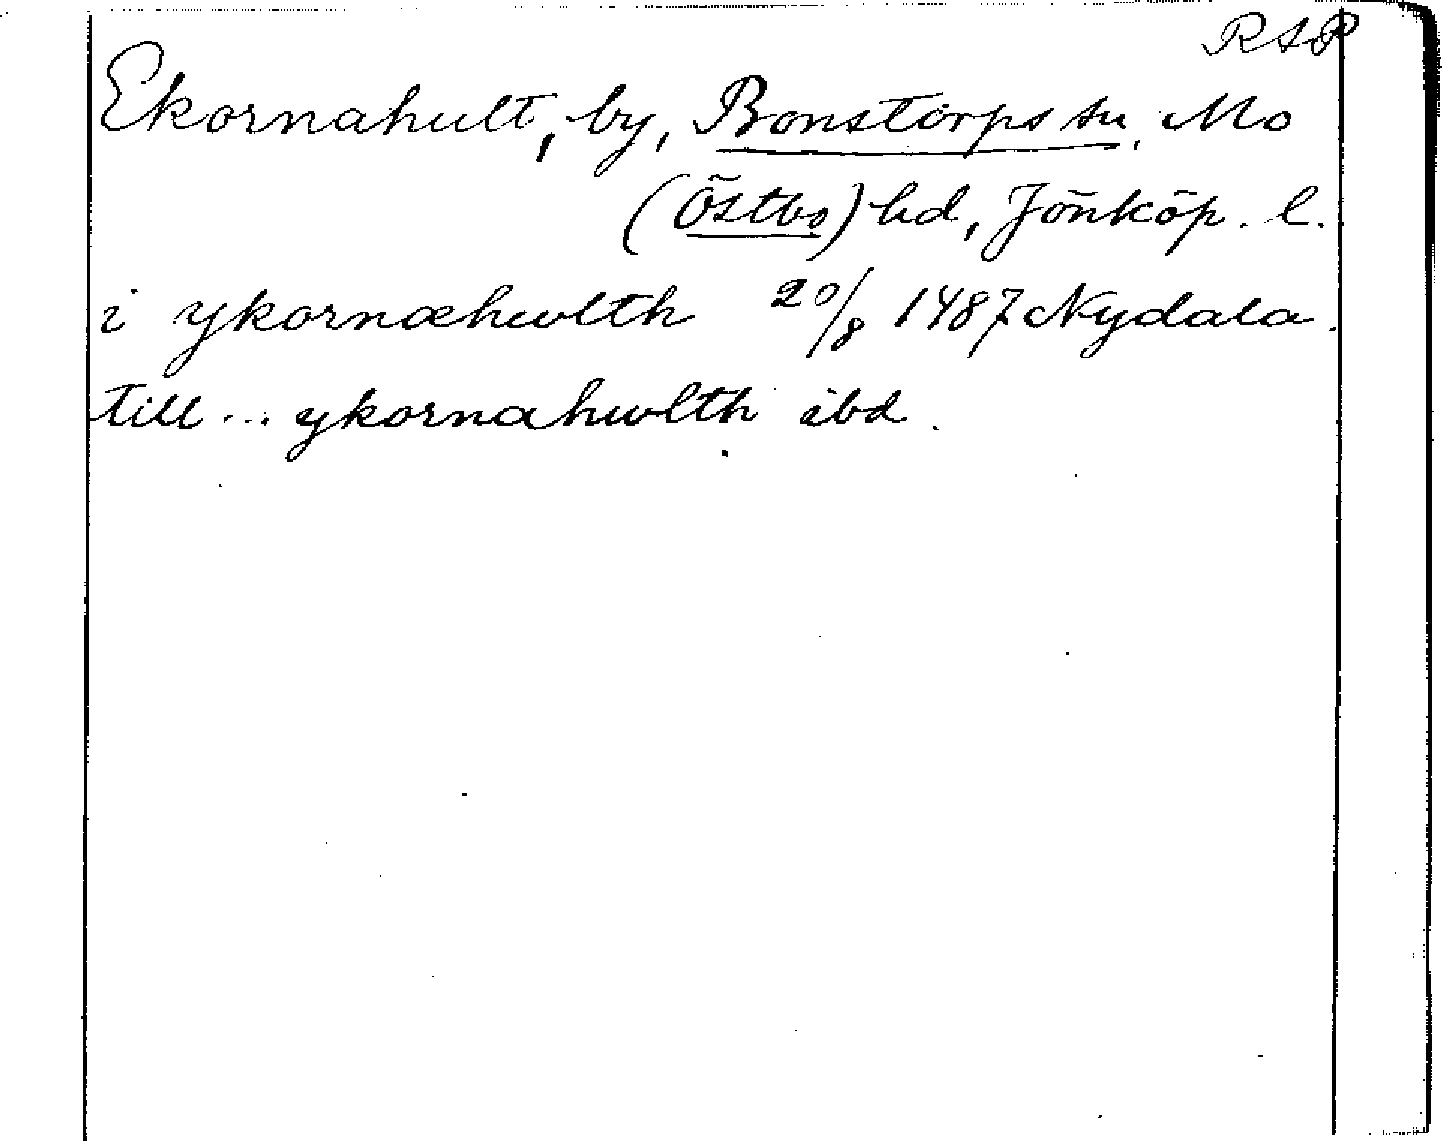 RAP
Ekornahult, by, Bonstorps sn, Mo
(Östbo) hd, Jönköp. l.
i ykornæhwlth 20/8 1487 Nydala.
till ... ykornahwlth ibd.